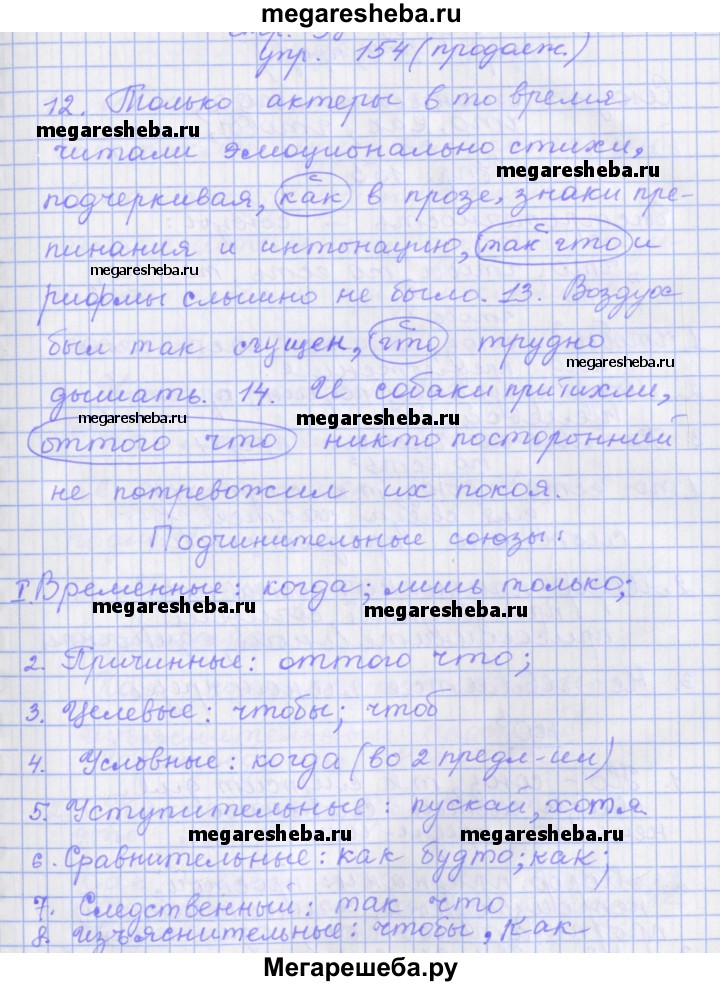 megaresheba.ru
упр. 154 (продолж.)
12. Только актеры в то время
megaresheba.ru
читали эмоционально стихи,
megaresheba.ru
подчеркивая, как в прозе, знаки пре-
пинания и интонацию, так что и
megaresheba.ru
рифмы слышно не было. 13. Воздух
был так сгущен, что трудно
megaresheba.ru
дышать. 14. И собаки притихли,
megaresheba.ru
megaresheba.ru
оттого что никто посторонний
не потревожил их покоя.
Подчинительные союзы:
I. Временные: когда; лишь только;
megaresheba.ru
megaresheba.ru
2. Причинные: оттого что;
3. Целевые: чтобы; чтоб
4. Условные: когда (во 2 предл-ии)
5. Уступительные: пускай, хотя
megaresheba.ru
megaresheba.ru
6. Сравнительные: как будто; как;
7. Следственный: так что
8. изъяснительные: чтобы, как
Мегарешеба.ру